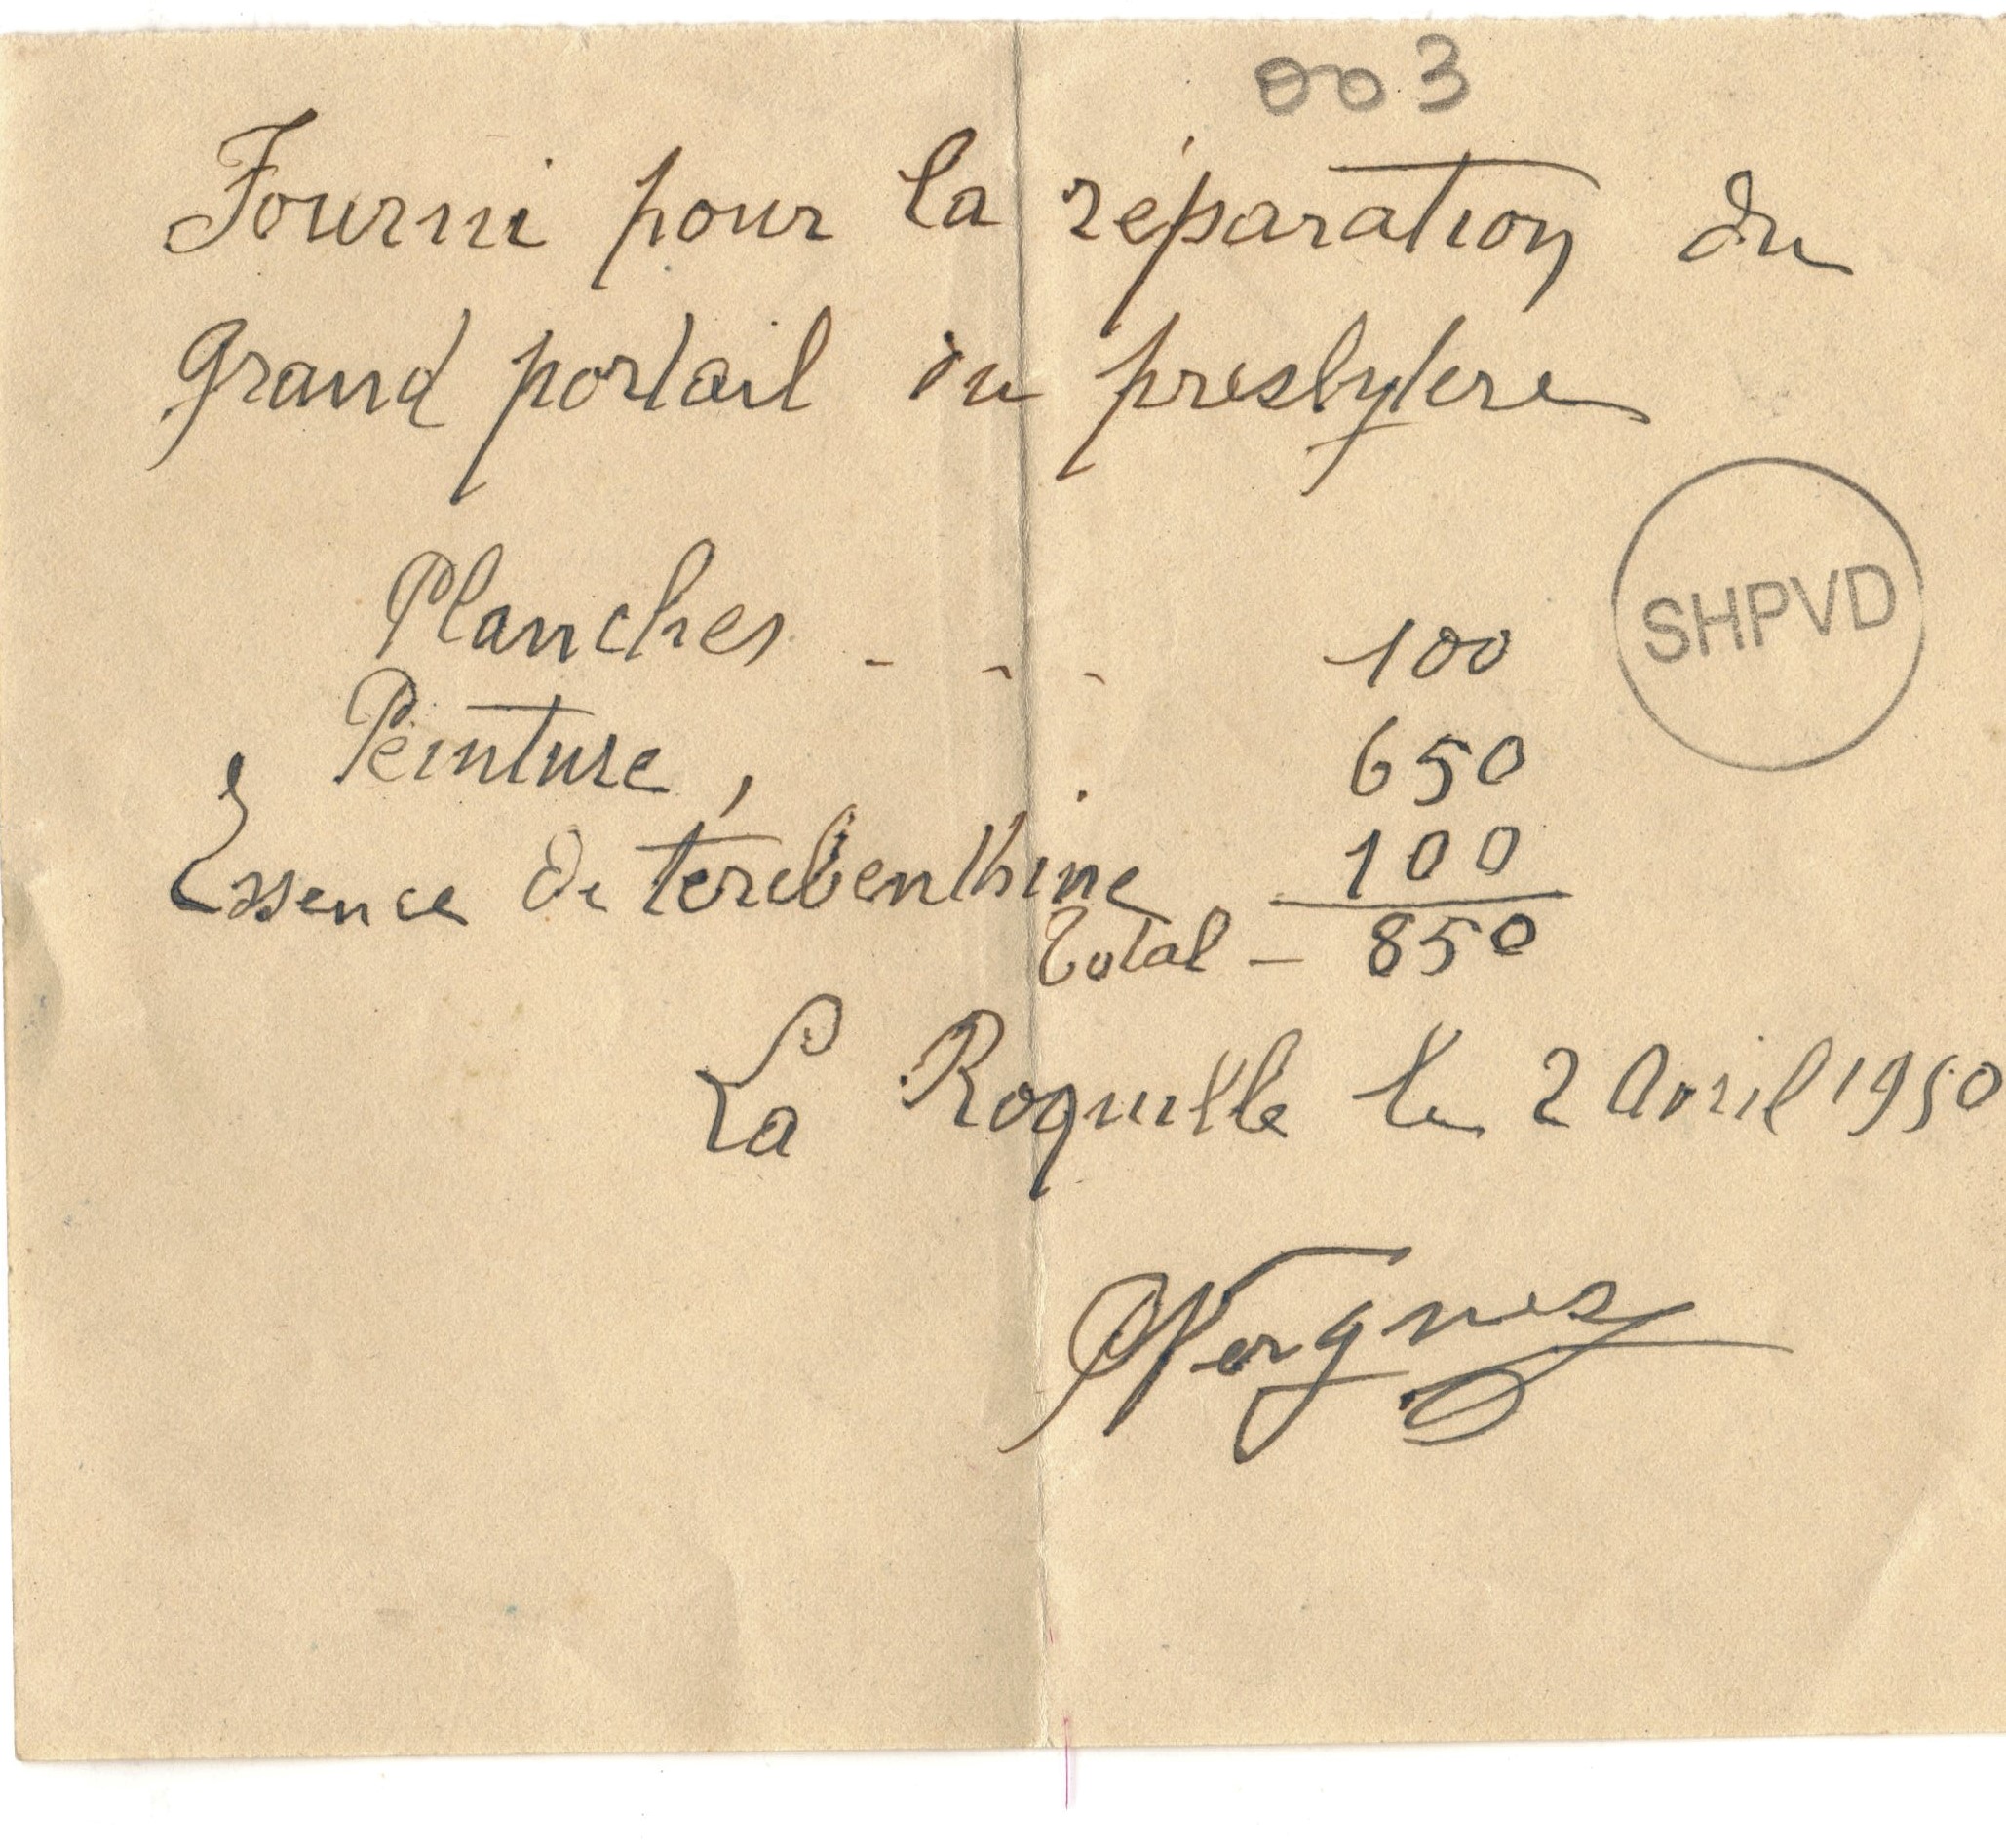 003
Fourni pour la réparation du
grand portail du presbytere
Planches - - - 100
SHPVD
Peinture, 650
Essence de térébenthine 100
Total - 850
La Roquille le 2 Avril 1950
Vergnes